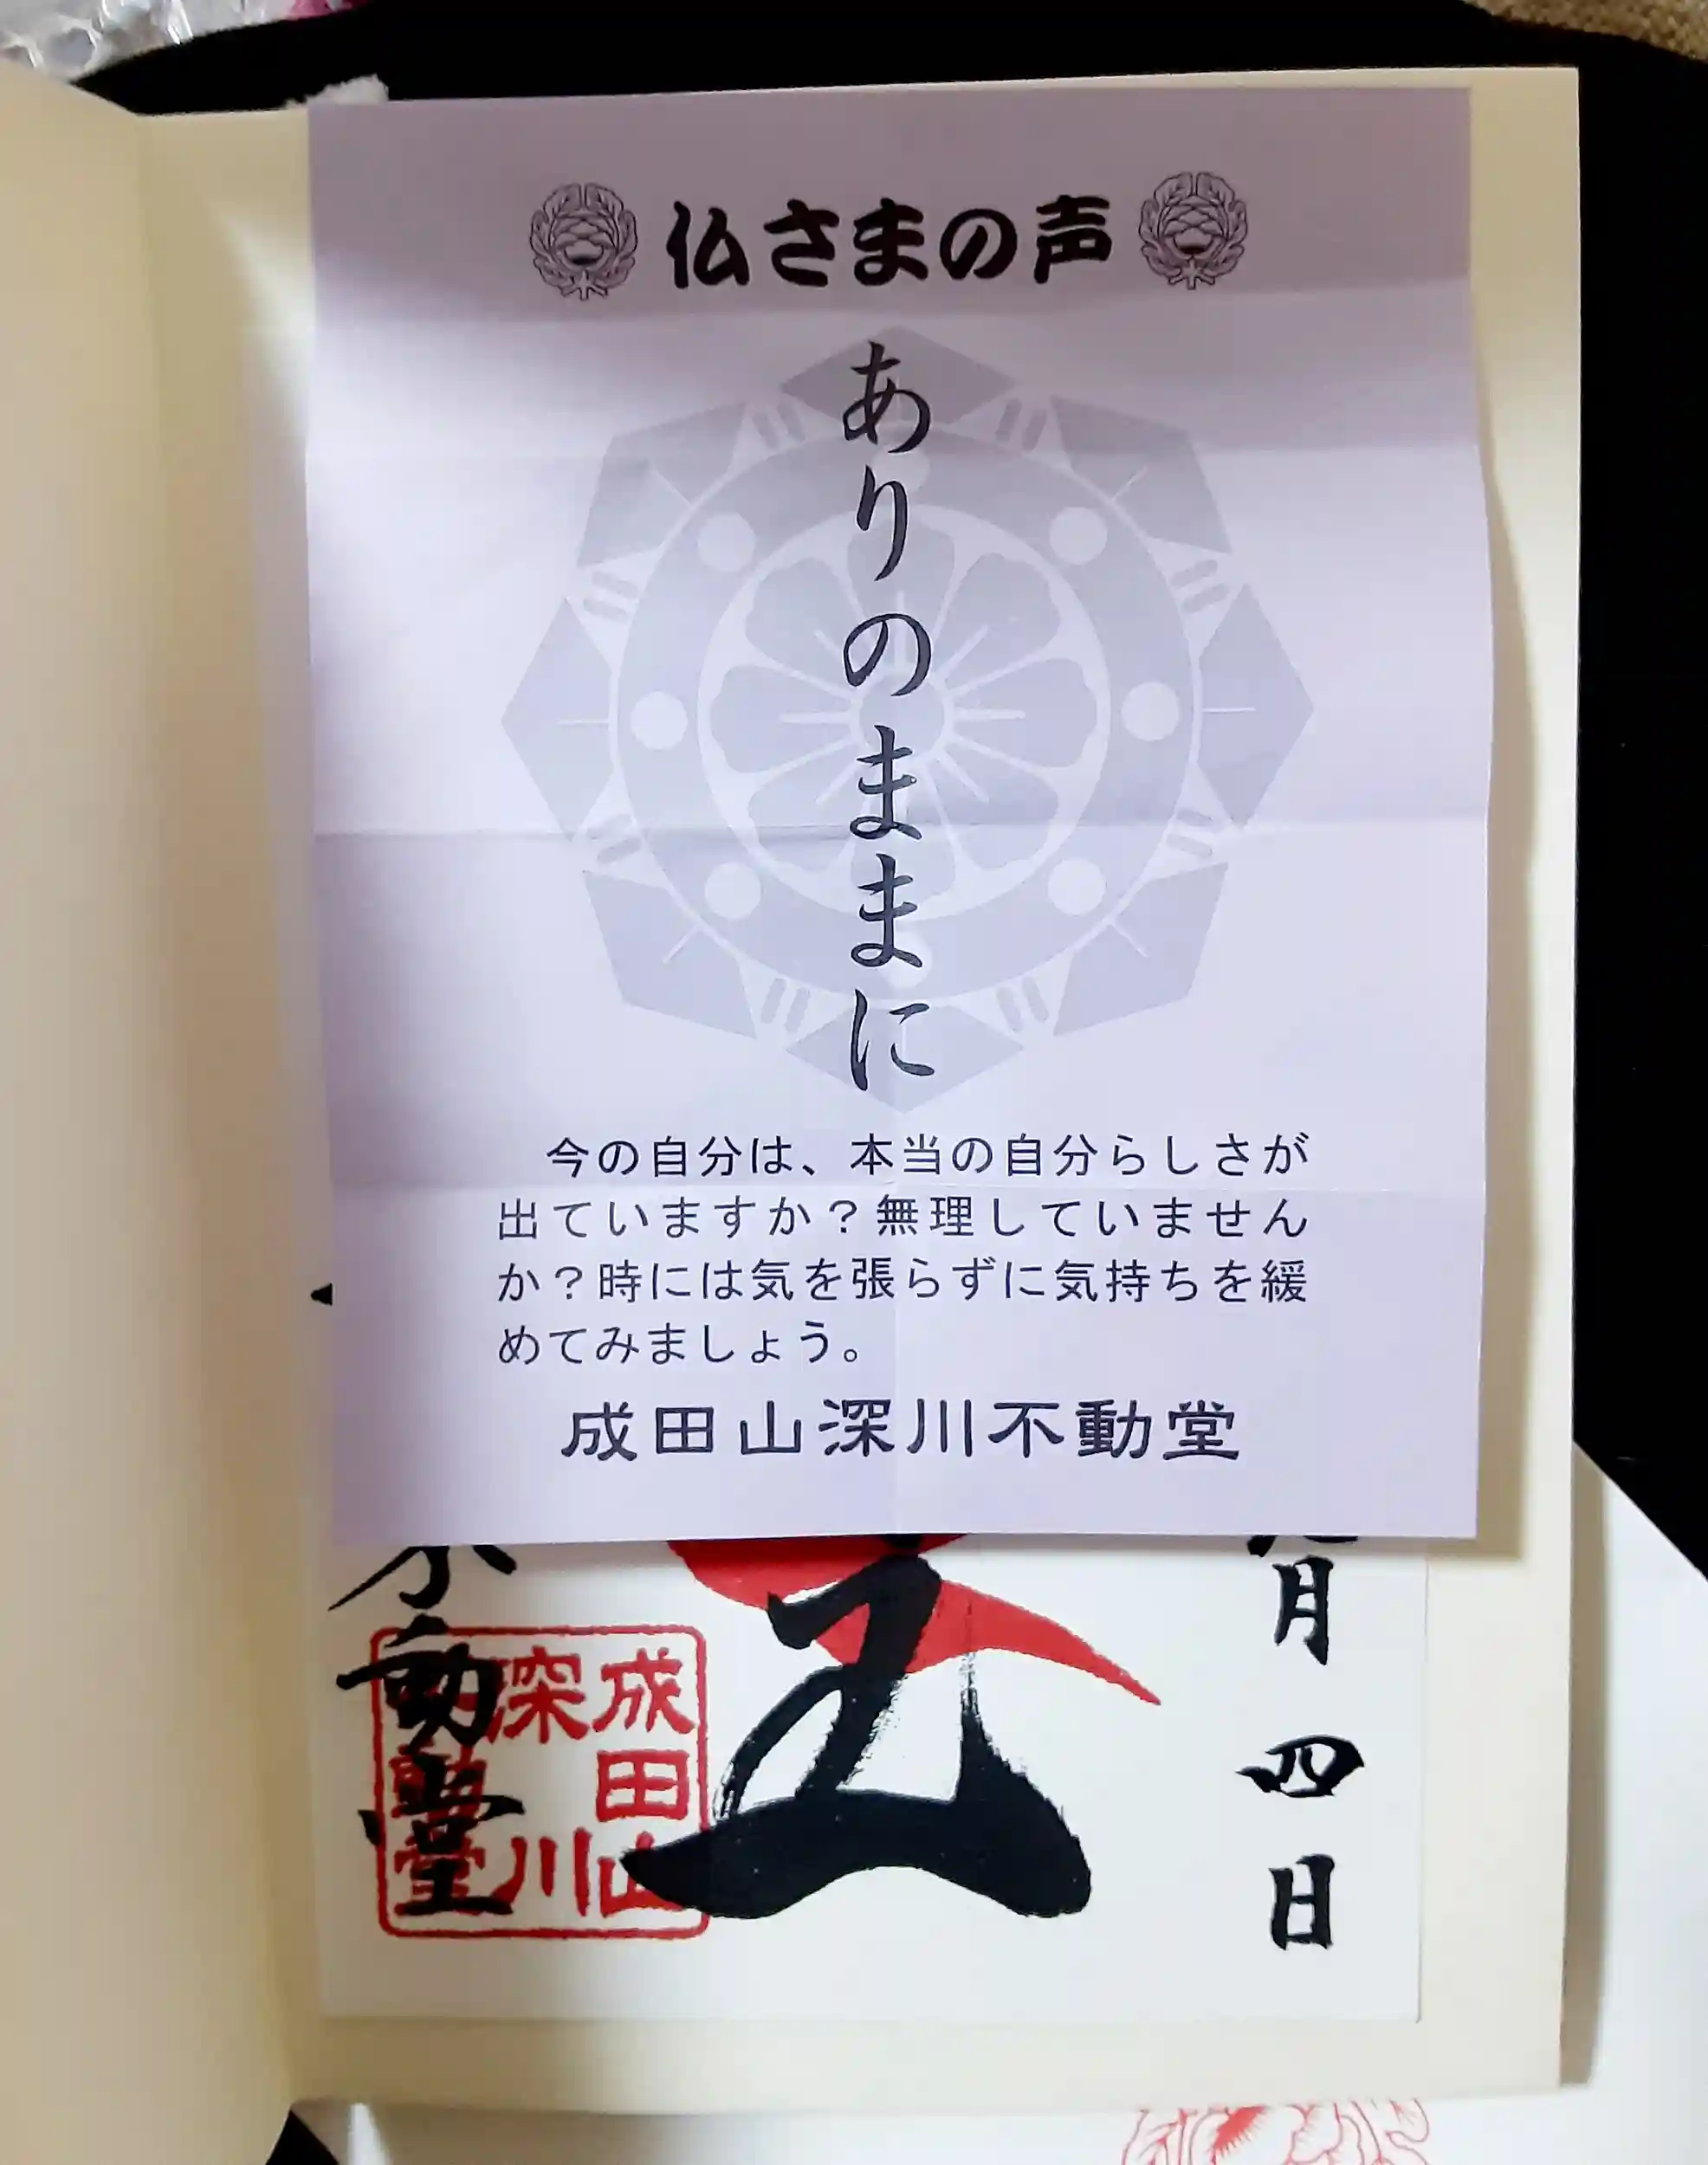 仏さまの声
ありのままに
今の自分は、本当の自分らしさが
出ていますか？無理していません
か？時には気を張らずに気持ちを緩
めてみましょう。
成田山深川不動堂
月四日
動堂
成田山
深川